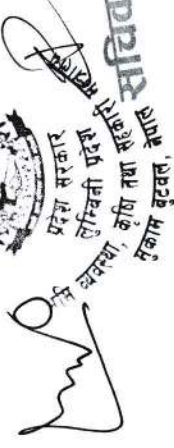 प्रदेश सरकार
लुम्बिनी प्रदेश
भूमि व्यवस्था, कृषि तथा सहकारी मन्त्रालय
मुकाम बुटवल, नेपाल
सचिव